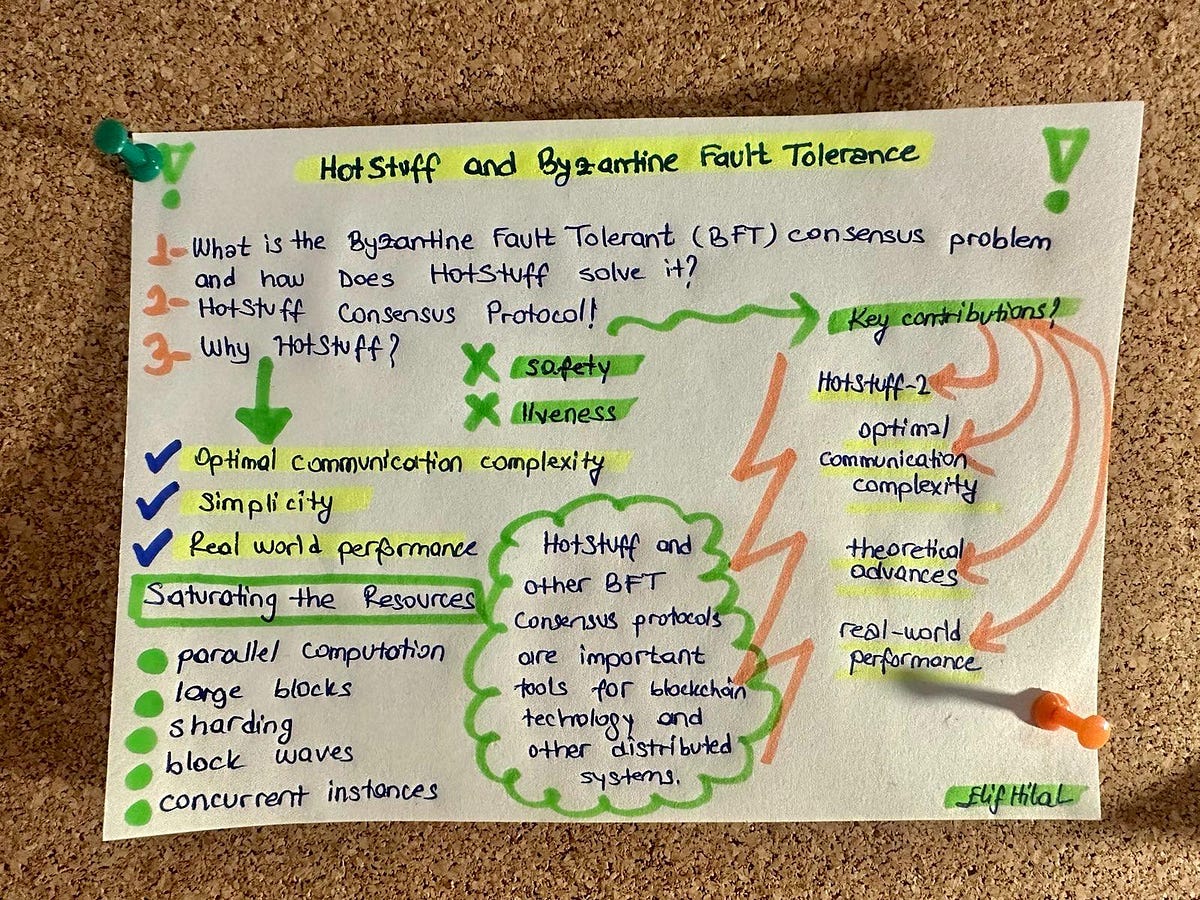 HotStuff and Byzantine Fault Tolerance
1- What is the Byzantine Fault Tolerant (BFT) consensus problem
and how Does HotStuff solve it?
2- HotStuff Consensus Protocol!
3- Why HotStuff?
safety
liveness
Optimal communication complexity
Simplicity
Real world performance
Saturating the Resources
parallel computation
large blocks
sharding
block waves
concurrent instances
HotStuff and
other BFT
Consensus protocols
are important
tools for blockchain
technology and
other distributed
systems.
Key contributions?
HotStuff-2
optimal
communication
complexity
theoretical
advances
real-world
performance
Elif Hilal